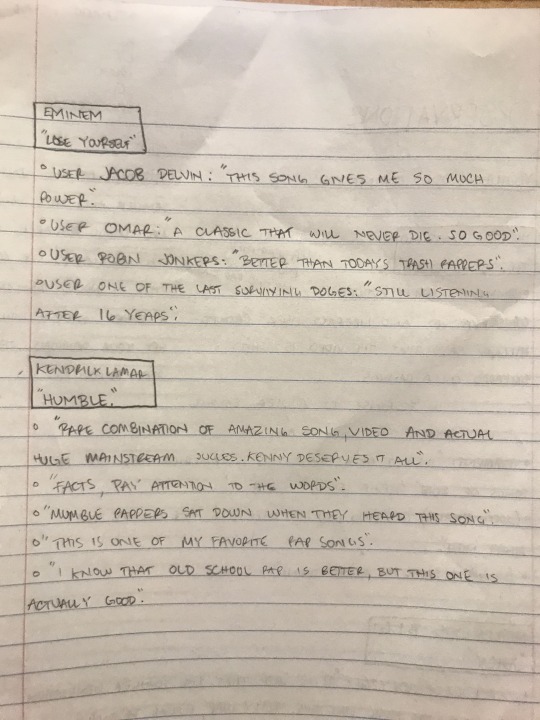 EMINEM
"LOSE YOURSELF"
° USER JACOB DELVIN: "THIS SONG GIVES ME SO MUCH
POWER".
° USER OMAR: "A CLASSIC THAT WILL NEVER DIE. SO GOOD".
° USER ROBIN JONKERS: "BETTER THAN TODAYS TRASH RAPPERS".
° USER ONE OF THE LAST SURVIVING DOGES: "STILL LISTENING
AFTER 16 YEARS".
KENDRICK LAMAR
"HUMBLE."
° "RARE COMBINATION OF AMAZING SONG, VIDEO AND ACTUAL
HUGE MAINSTREAM SUCCES. KENNY DESERVES IT ALL".
° "FACTS, PAY ATTENTION TO THE WORDS".
° "MUMBLE RAPPERS SAT DOWN WHEN THEY HEARD THIS SONG".
° "THIS IS ONE OF MY FAVORITE RAP SONGS".
° "I KNOW THAT OLD SCHOOL RAP IS BETTER, BUT THIS ONE IS
ACTUALLY GOOD".